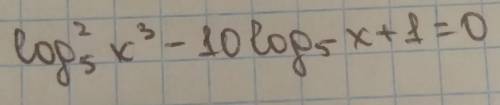 log₅² x³ - 10 log₅ x + 1 = 0